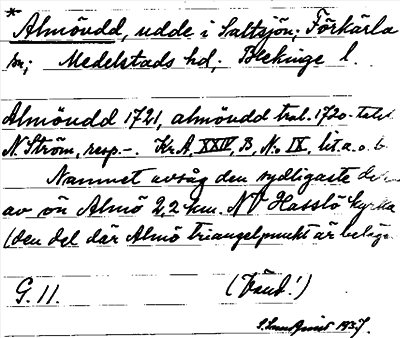 * Almöudd, udde i Saltsjön; Förkärla
sn; Medelstads hd; Blekinge l.
Almöudd 1721, almöudd trol. 1720-talet
N. Ström, resp. –. Kr.A, XXIV, B, No IX, lit. a. o. b.
Namnet avsåg den sydligaste
av ön Almö 2,2 km. NV Hasslö kyrka
(den del där Almö triangelpunkt är
G. 11. (Vänd!)
1937.